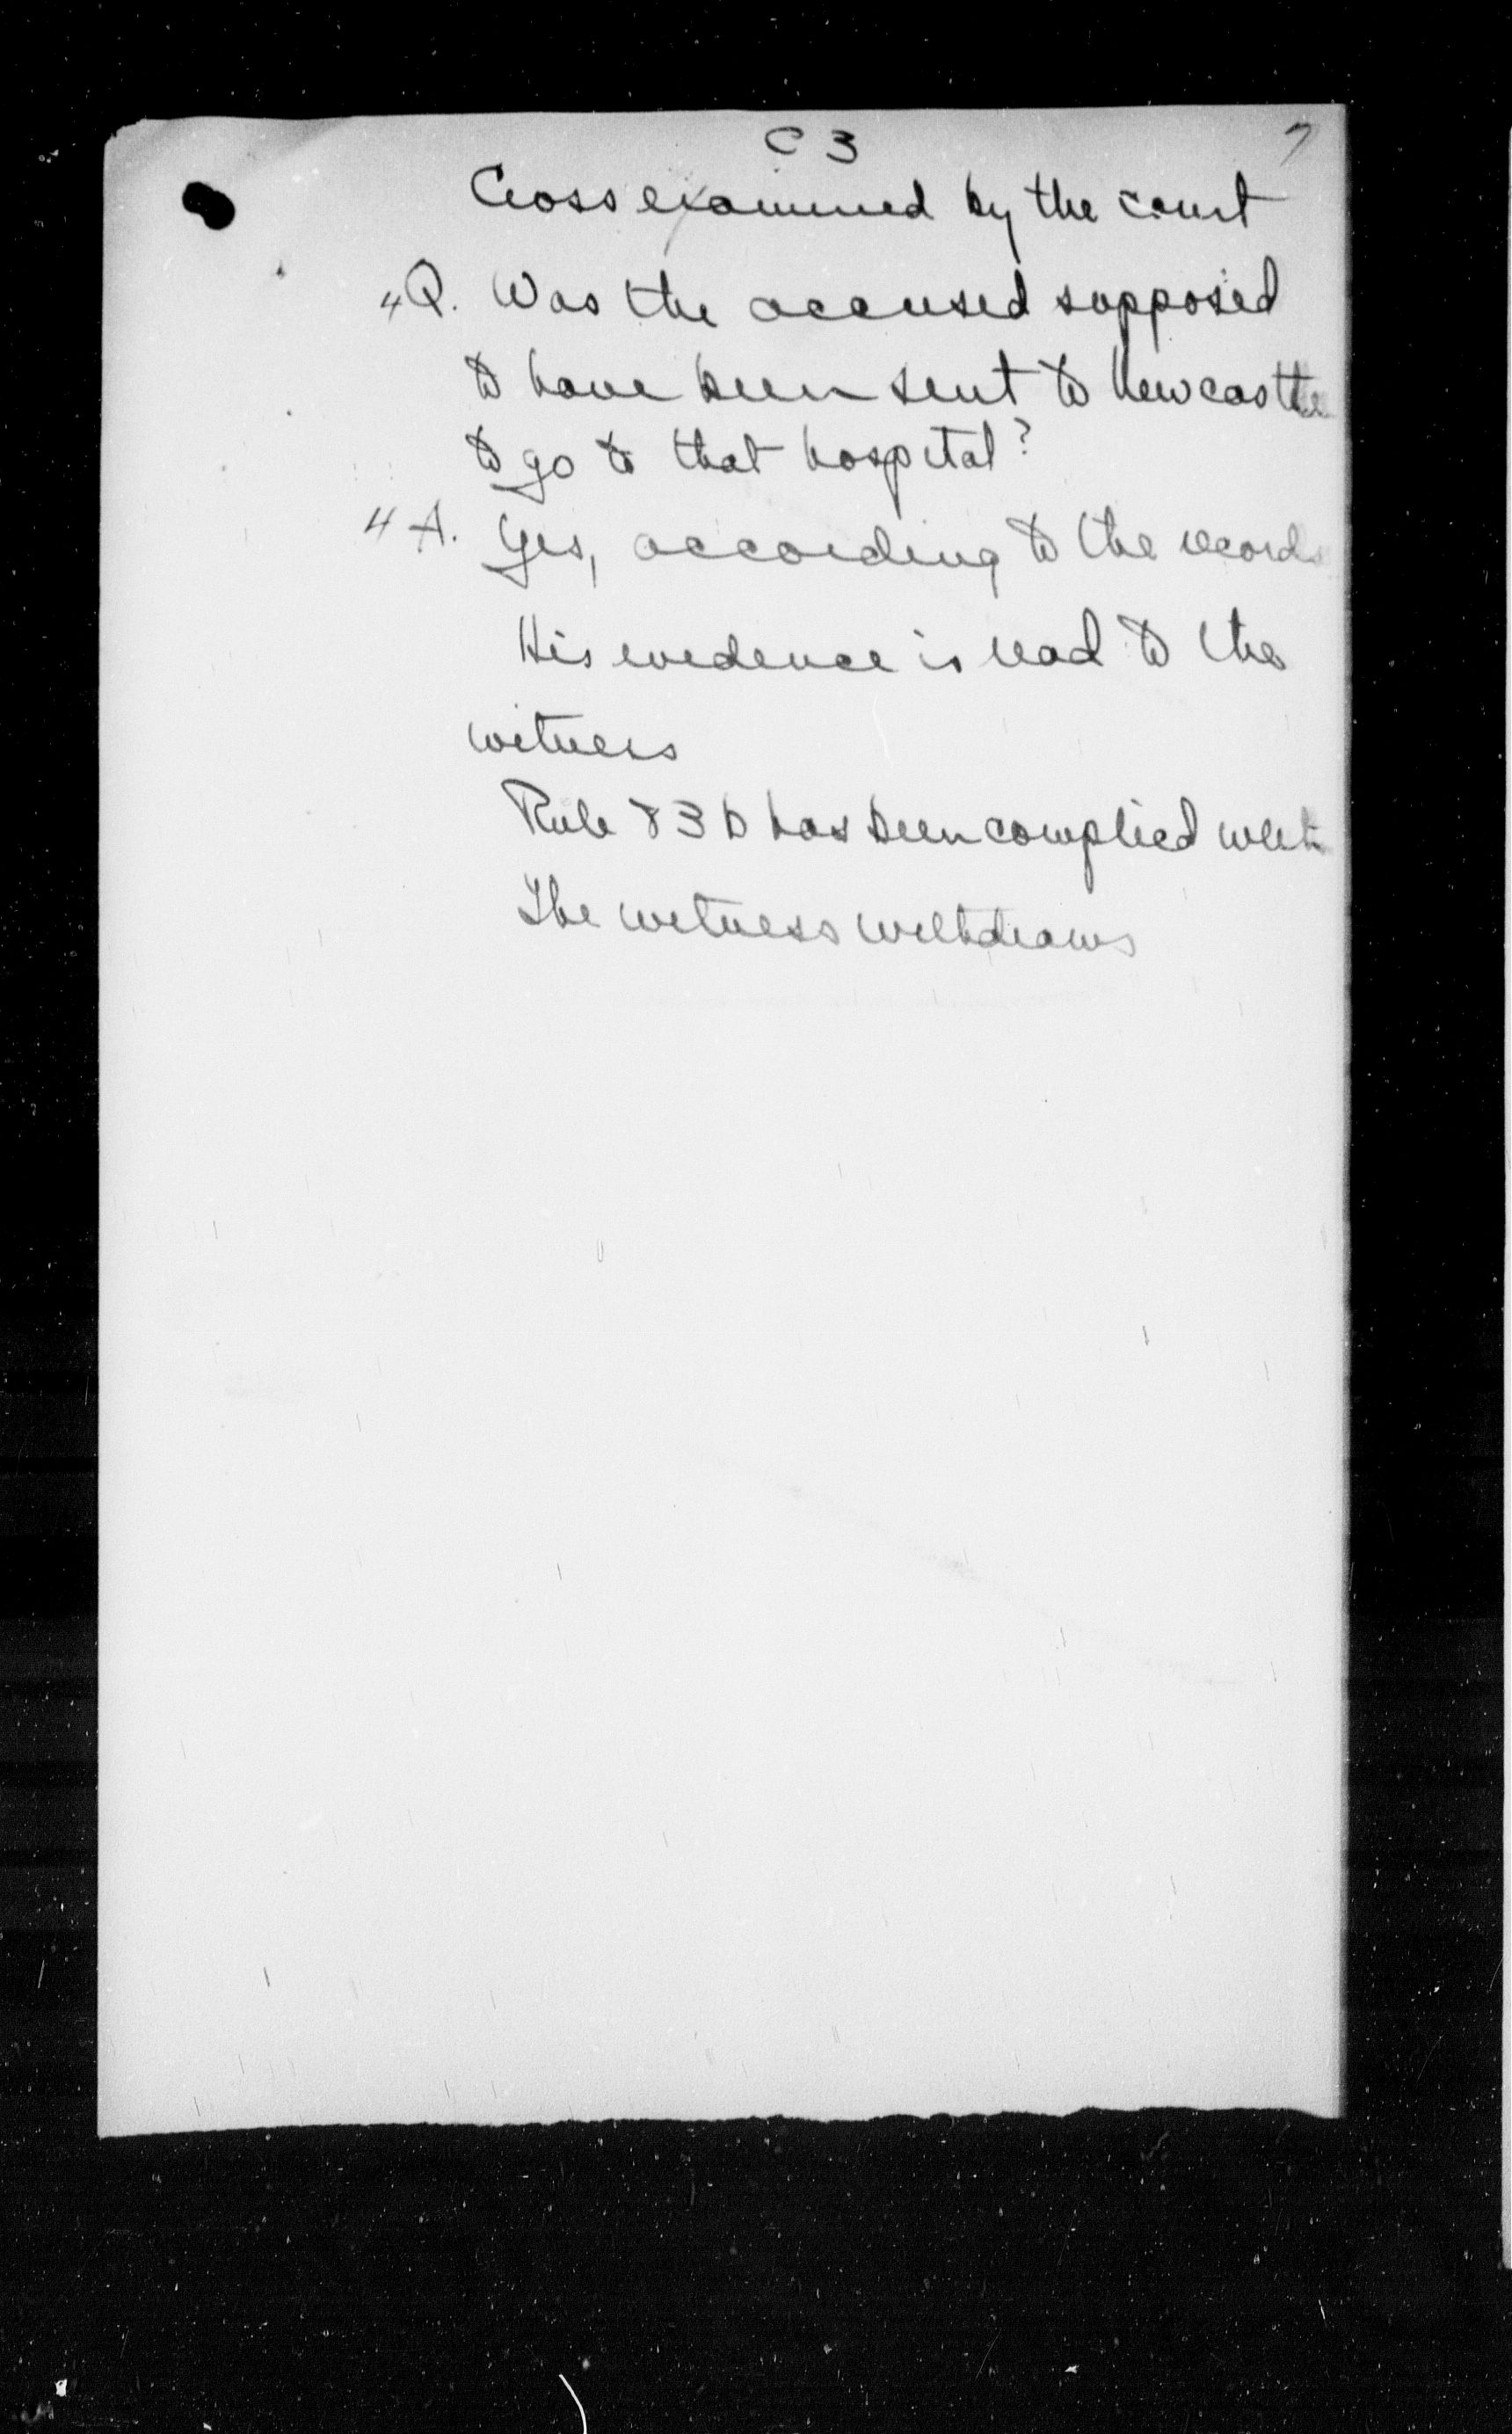 C 3
7
Cross examined by the court
4 Q. Was the accused supposed
to have been sent to Newcastle
to go to that hospital?
4 A. Yes, according to the records
His evidence is read to the
witness
Rule 83 b has been complied with
The witness withdraws